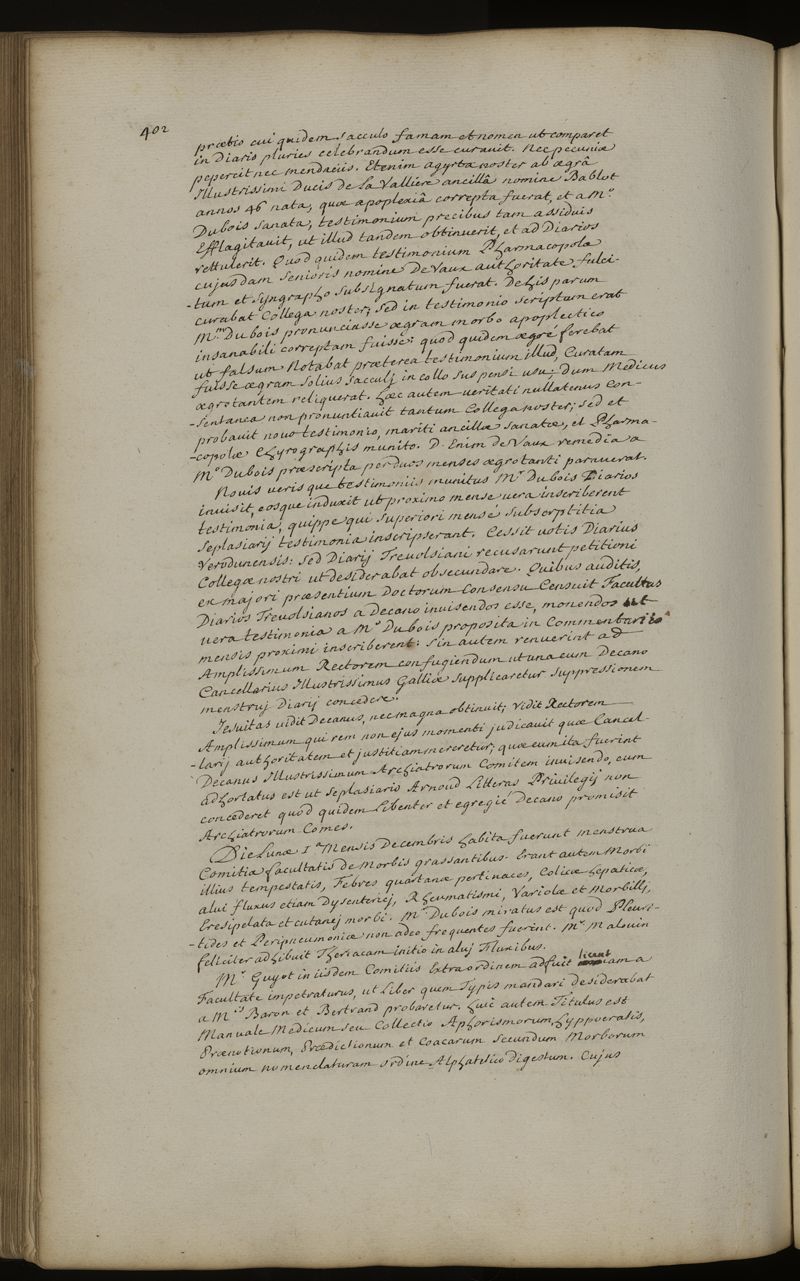 402
prætio cui quidem sacculo famam et nomen ut comparet
in Diario pluries celebrandum esse curauit. Nec pecuniæ
pepercit nec mendaciis. Etenim agyrta noster ab ægrâ
Illustrissimi Ducis de La Valliere ancillâ nomine Bablot
annos 46 nata, quæ apoplexiâ correpta fuerat, et a M.o
Dubois sanata, testimonium precibus tam assiduis
Efflagitauit, ut illud tandem obtinuerit, et ad Diarios
rettulerit. Quod quidem testimonium Pharmacopolæ
cujusdam Senioris nomine De Vaux authoritate fulci-
-tum et syngrapho subsignatum fuerat. De his parum
curabat Collega noster, sed in testimonio scriptum erat
M.um Dubois pronunciasse ægram morbo apoplectico
insanabili correptam fuisse: quod quidem ægré ferebat
ut falsum Notabat præterea testimonium illud, Curatam
fuisse ægram solius sacculj in collo suspensi usu; Dum Medicus
ægrotantem reliquerat. Hæc autem ueritati nullatenus Con-
-sentanea non pronuntiauit tantum Collega noster; sed et
probauit nouo testimonio, mariti ancillæ sanatæ, et Pharma-
-copolæ Chyrographis munito. D. Enim de Vaux remedia a
M.o Dubois præscripta per duos menses ægrotanti parauerat.
Nouis ueris que testimoniis munitus M.r Dubois Diarios
inuisit, eosque induxit ut proximo mense uera inscriberent
testimonia, quippe qui superiori mense subreptitia
Seplasiarij testimonia inscripserant. Cessit uotis Diarius
Verodunensis: sed Diarij Treuolsiani recusarunt petitioni
Collegæ nostri ut desiderabat obsecundare. Quibus auditis,
ex majori præsentium Doctorum Consensu Censuit Facultas
Diarios Treuolsianos a Decano inuisendos esse, monendos ut
uera testimonia a M.o Dubois proposita in Commentario
mensis proximi inscriberent: sin autem renuerint ad
Amplissimum Rectorem confugiendum ut una cum Decano
Cancellarius Illustrissimus Galliæ supplicaretur suppressionem
menstruj Diarij concedere.
Iesuitas uidit Decanus, nec magna obtinuit; Vidit Rectorem
Amplissimum qui rem non ejus momenti judicauit quæ Cancel-
-larij authoritatem et justitiam mereretur; quæ cum ita fuerint
Decanus Illustrissimum Archiatrorum Comitem inuisendo, eum
adhortatus est ut seplasiario Arnoud Litteras Priuilegij non
concederet quod quidem Libenter et egregié Decano promisit
Archiatrorum Comes.
Die Lunæ 1.a Mensis Decembris habita fuerunt menstrua
Comitia facultatis de Morbis grassantibus. Erant autem Morbi
illius tempestatis, Febres quartanæ pertinaces, Colicæ hepaticæ,
alui fluxus etiam Dysenteriej, Rheumatismi, Variolæ et Morbillj,
Eresipelata et cutanej morbi. M.r Dubois miratus est quod Pleuri-
-tides et Peripneumoniæ non adeo frequentes fuerint. M.r Malouin
feliciter adhibuit Theriacam initio in aluj Fluxibus.
M.r Guyot in iisdem Comitiis Extra ordinem adfuit licentiam a
Facultate impetraturus, ut Liber quem Typis mandari desiderabat
a M.ris Baron et Bertrand probaretur. Huic autem Titulus est
Manuale Medicum seu Collectio Aphorismorum Hyppocratis,
Prænotionum, Prædictionum et Coacarum secundum Morborum
omnium nomenclaturam ordine Alphabetico Digestum. Cujus